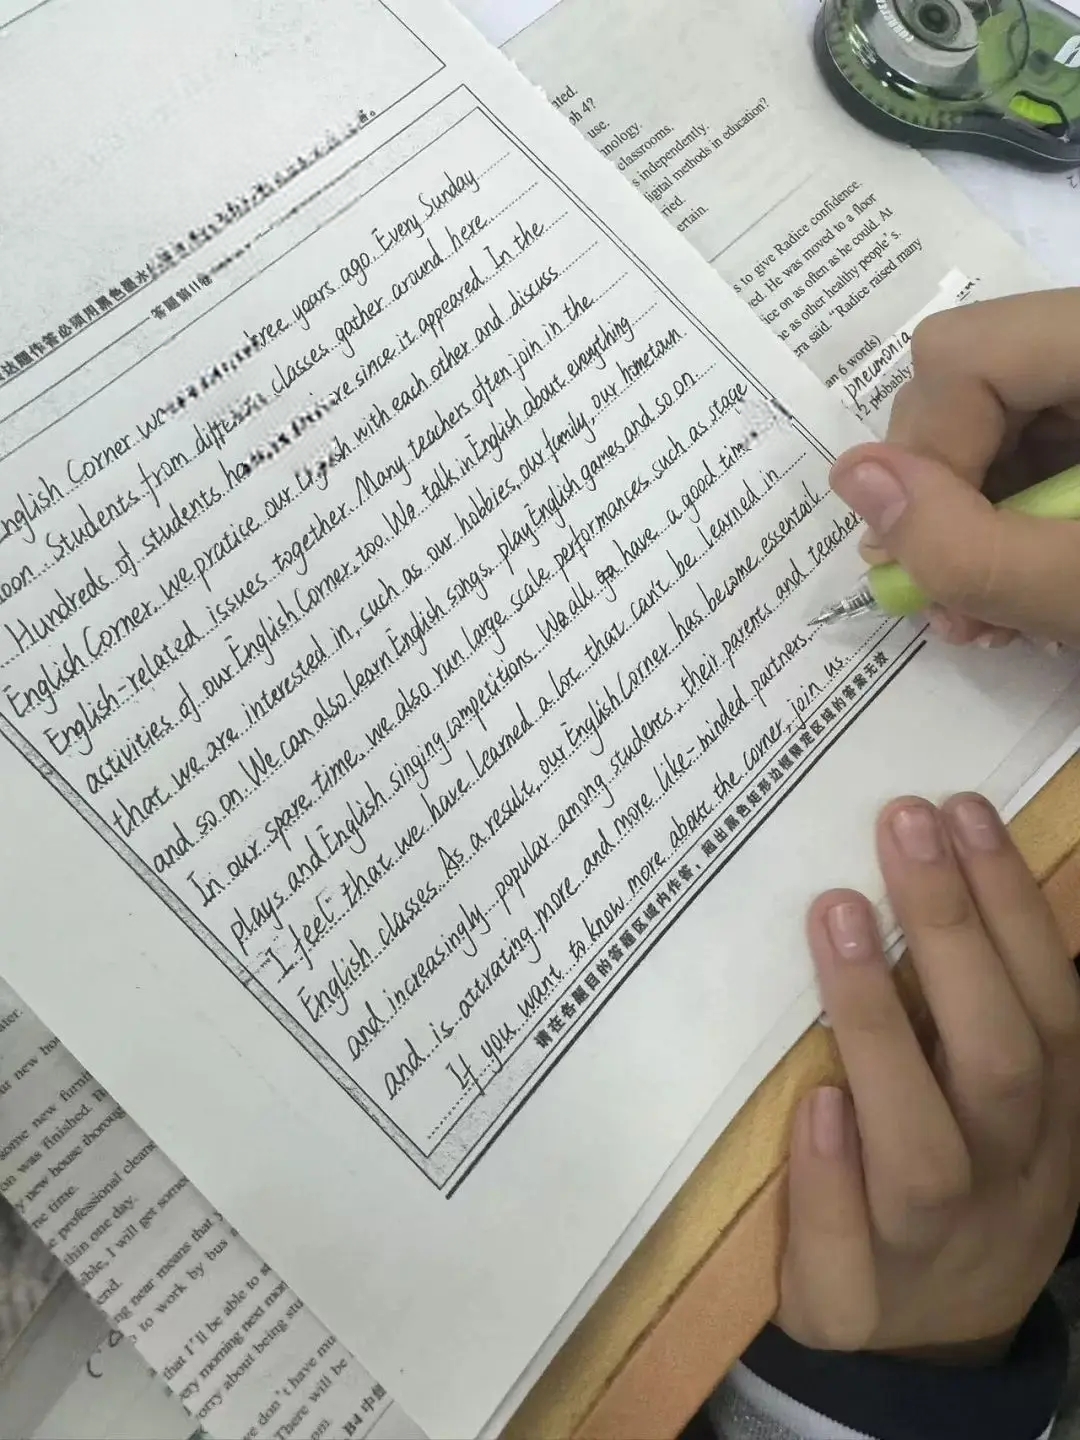 答题第II卷
English Corner three years ago. Every Sunday
Students from different classes gather around here.
Hundreds of students since it appeared. In the
English Corner, we pratice our English with each other and discuss
English-related issues together. Many teachers often join in the
activities of our English Corner, too. We talk in English about everything
that we are interested in, such as our hobbies, our family, our hometown
and so on. We can also learn English songs, play English games and so on.
In our spare time, we also run large scale performances such as stage
plays and English singing competitions. We all have a good time
I feel that we have learned a lot that can't be learned in
English classes. As a result, our English Corner has become essentail
and increasingly popular among students, their parents and teacher
and is attrating more and more like-minded partners.
If you want to know more about the corner, join us.
请在各题目的答题区域内作答，超出黑色矩形边框限定区域的答案无效
ph 4?
use.
classrooms.
s independently.
digital methods in education?
s to give Radice confidence.
He was moved to a floor
on as often as he could. At
as other healthy people's.
said. "Radice raised many
6 words)
pneumonia
probably
some new
was finished.
new house
time.
professional
one day.
I will get some
end.
near means that
to work by bus
that I'll be able to
morning next
about being
don't have
There will be
B4